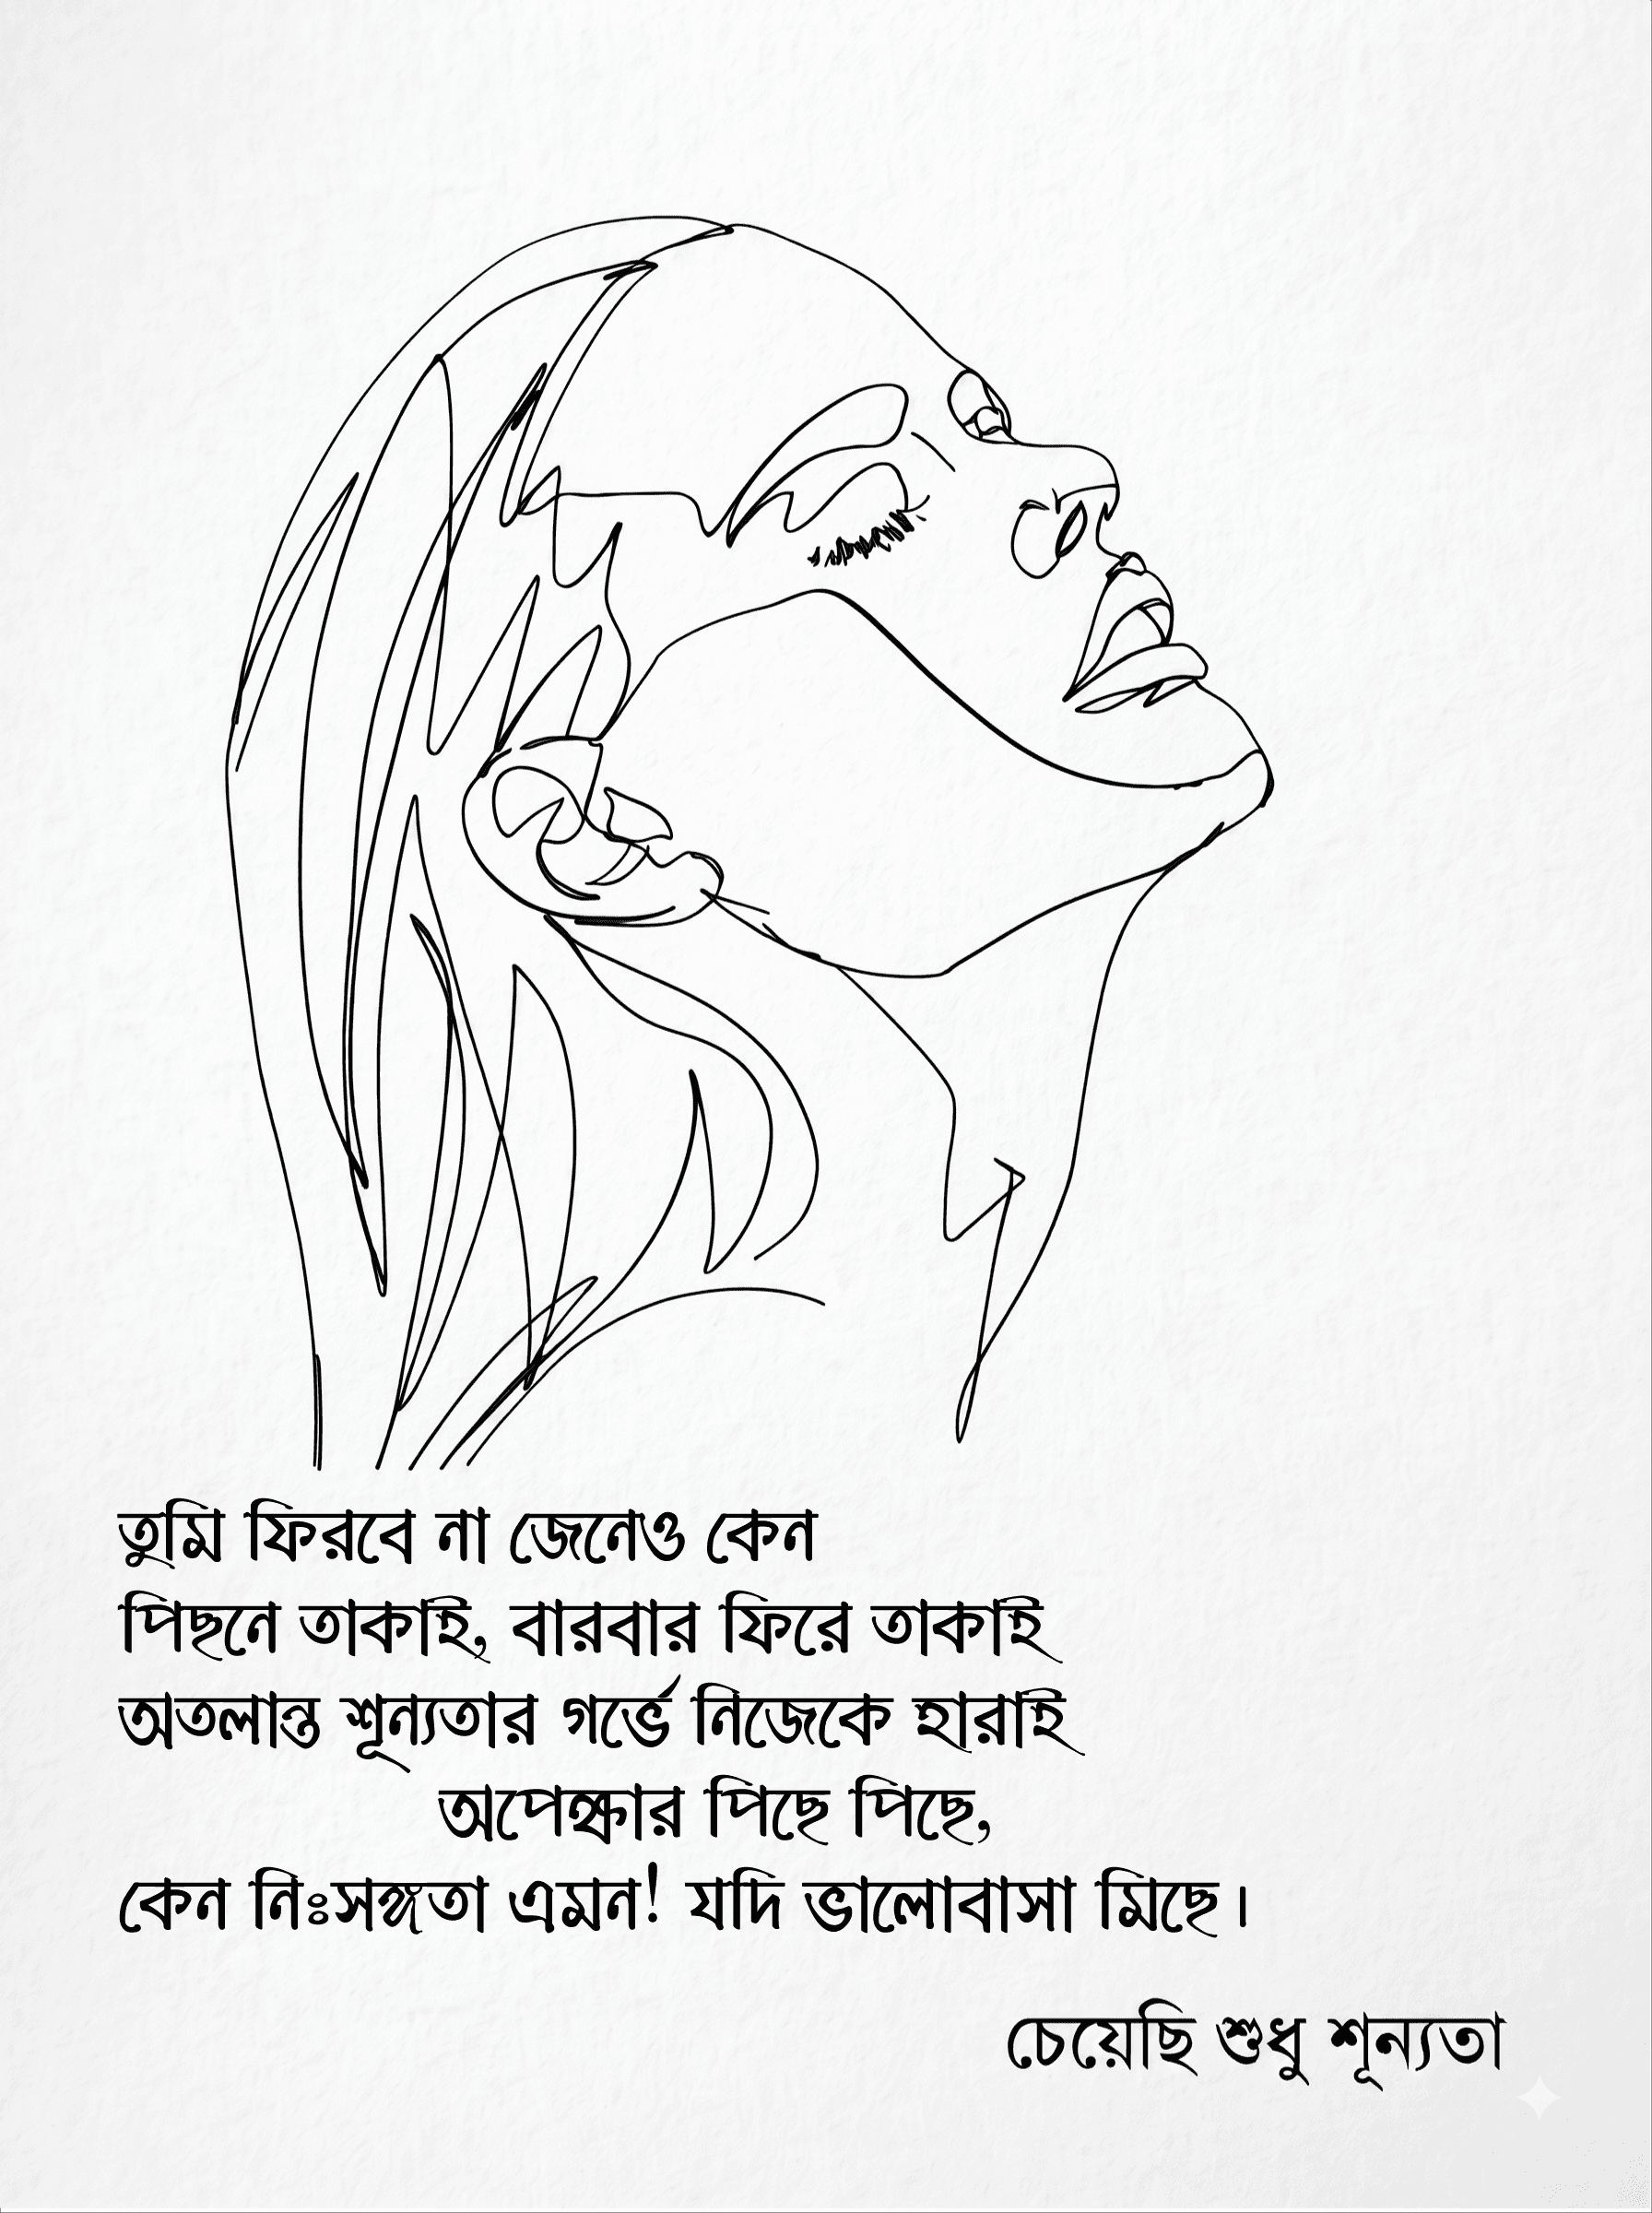 তুমি ফিরবে না জেনেও কেন
পিছনে তাকাই, বারবার ফিরে তাকাই
অতলান্ত শূন্যতার গর্ভে নিজেকে হারাই
অপেক্ষার পিছে পিছে,
কেন নিঃসঙ্গতা এমন! যদি ভালোবাসা মিছে।
চেয়েছি শুধু শূন্যতা